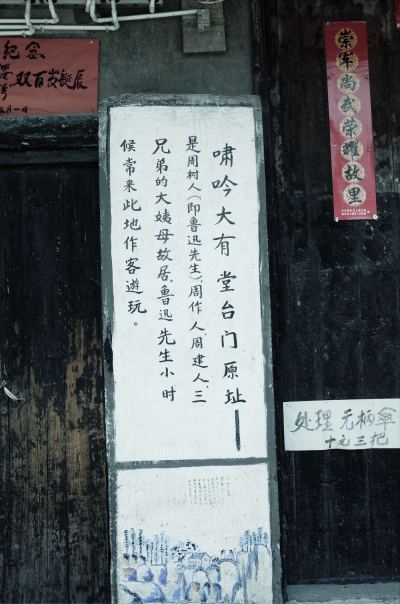 纪念
双百岁誕辰
月一日
嘯吟大有堂台门原址——
是周树人(即鲁迅先生)、周作人、周建人、三
兄弟的大姨母故居、鲁迅先生小时
候常来此地作客遊玩。
崇军尚武荣耀故里
处理无柄傘
十元三把